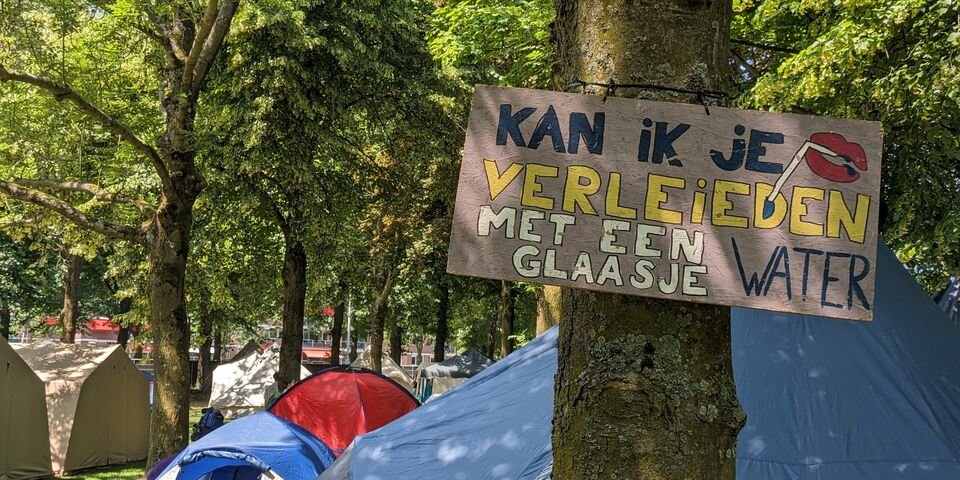 KAN iK JE
VERLEiEDEN
MET EEN
GLAASJE WATER